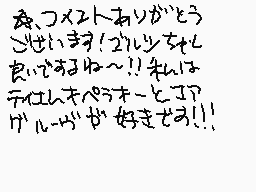 あ、コメントありがとう
ございます！ゴルシちゃん
良いですよね〜！！私は
テイエムオペラオーとエア
グルーヴが好きです！！！